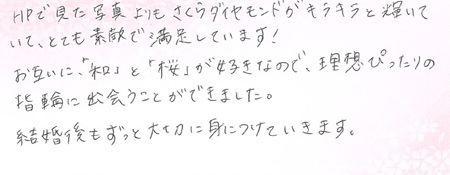 HPで見た写真よりもさくらダイヤモンドがキラキラと輝いて
いて、とても素敵で満足しています!
お互いに、「和」と「桜」が好きなので、理想ぴったりの
指輪に出会うことができました。
結婚後もずっと大切に身につけていきます。